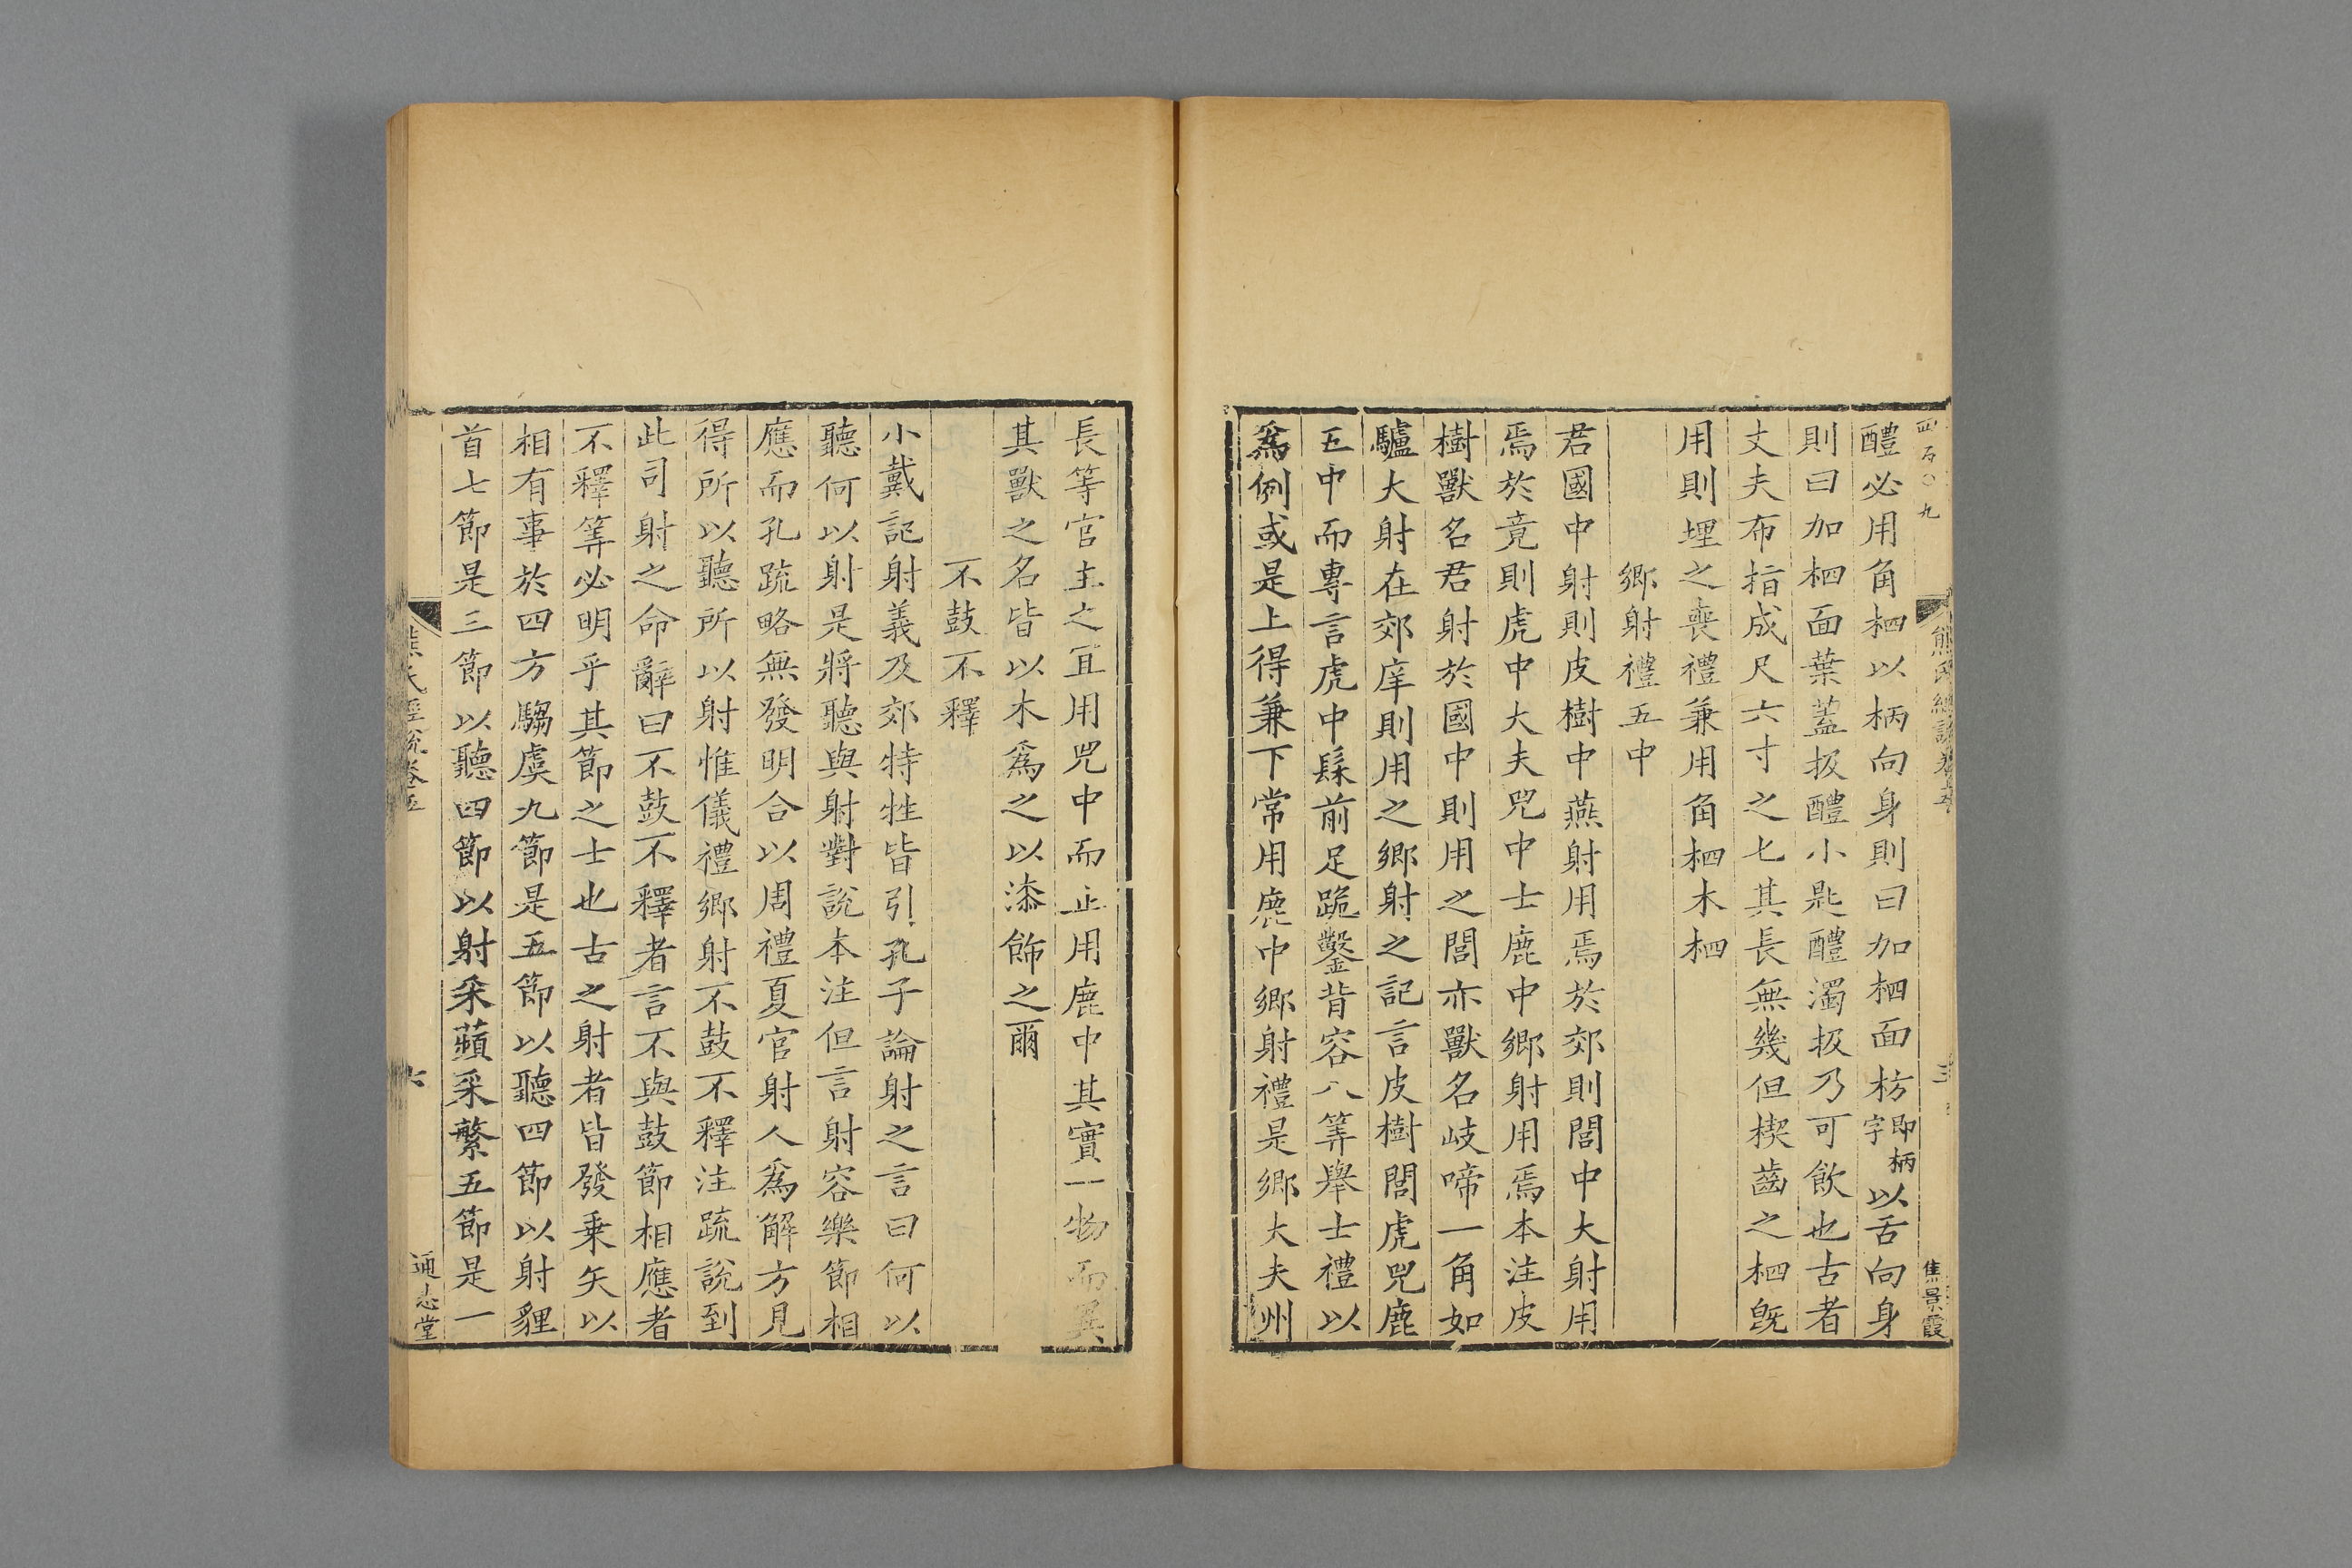 醴必用角柶以柄向身則曰加柶面枋即柄字以舌向身
則曰加柶面葉蓋扱醴小匙醴濁扱乃可飲也古者
丈夫布指成尺六寸之匕其長無幾但楔齒之柶既
用則埋之喪禮兼用角柶木柶
鄉射禮五中
君國中射則皮樹中燕射用焉於郊則閭中大射用
焉於竟則虎中大夫兕中士鹿中鄉射用焉本注皮
樹獸名君射於國中則用之閭亦獸名岐啼一角如
驢大射在郊庠則用之鄉射之記言皮樹閭虎兕鹿
五中而專言虎中髹前足跪鑿背容八筭舉士禮以
爲例或是上得兼下常用鹿中鄉射禮是鄉大夫州
長等官主之宜用兕中而止用鹿中其實一物而異
其獸之名皆以木爲之以漆飾之爾
不鼓不釋
小戴記射義及郊特牲皆引孔子論射之言曰何以
聽何以射是將聽與射對說本注但言射容樂節相
應而孔疏略無發明合以周禮夏官射人爲解方見
得所以聽所以射惟儀禮鄉射不鼓不釋注疏說到
此司射之命辭曰不鼓不釋者言不與鼓節相應者
不釋筭必明乎其節之士也古之射者皆發乗矢以
相有事於四方騶虞九節是五節以聽四節以射貍
首七節是三節以聽四節以射采蘋采蘩五節是一
通志堂
焦景霞